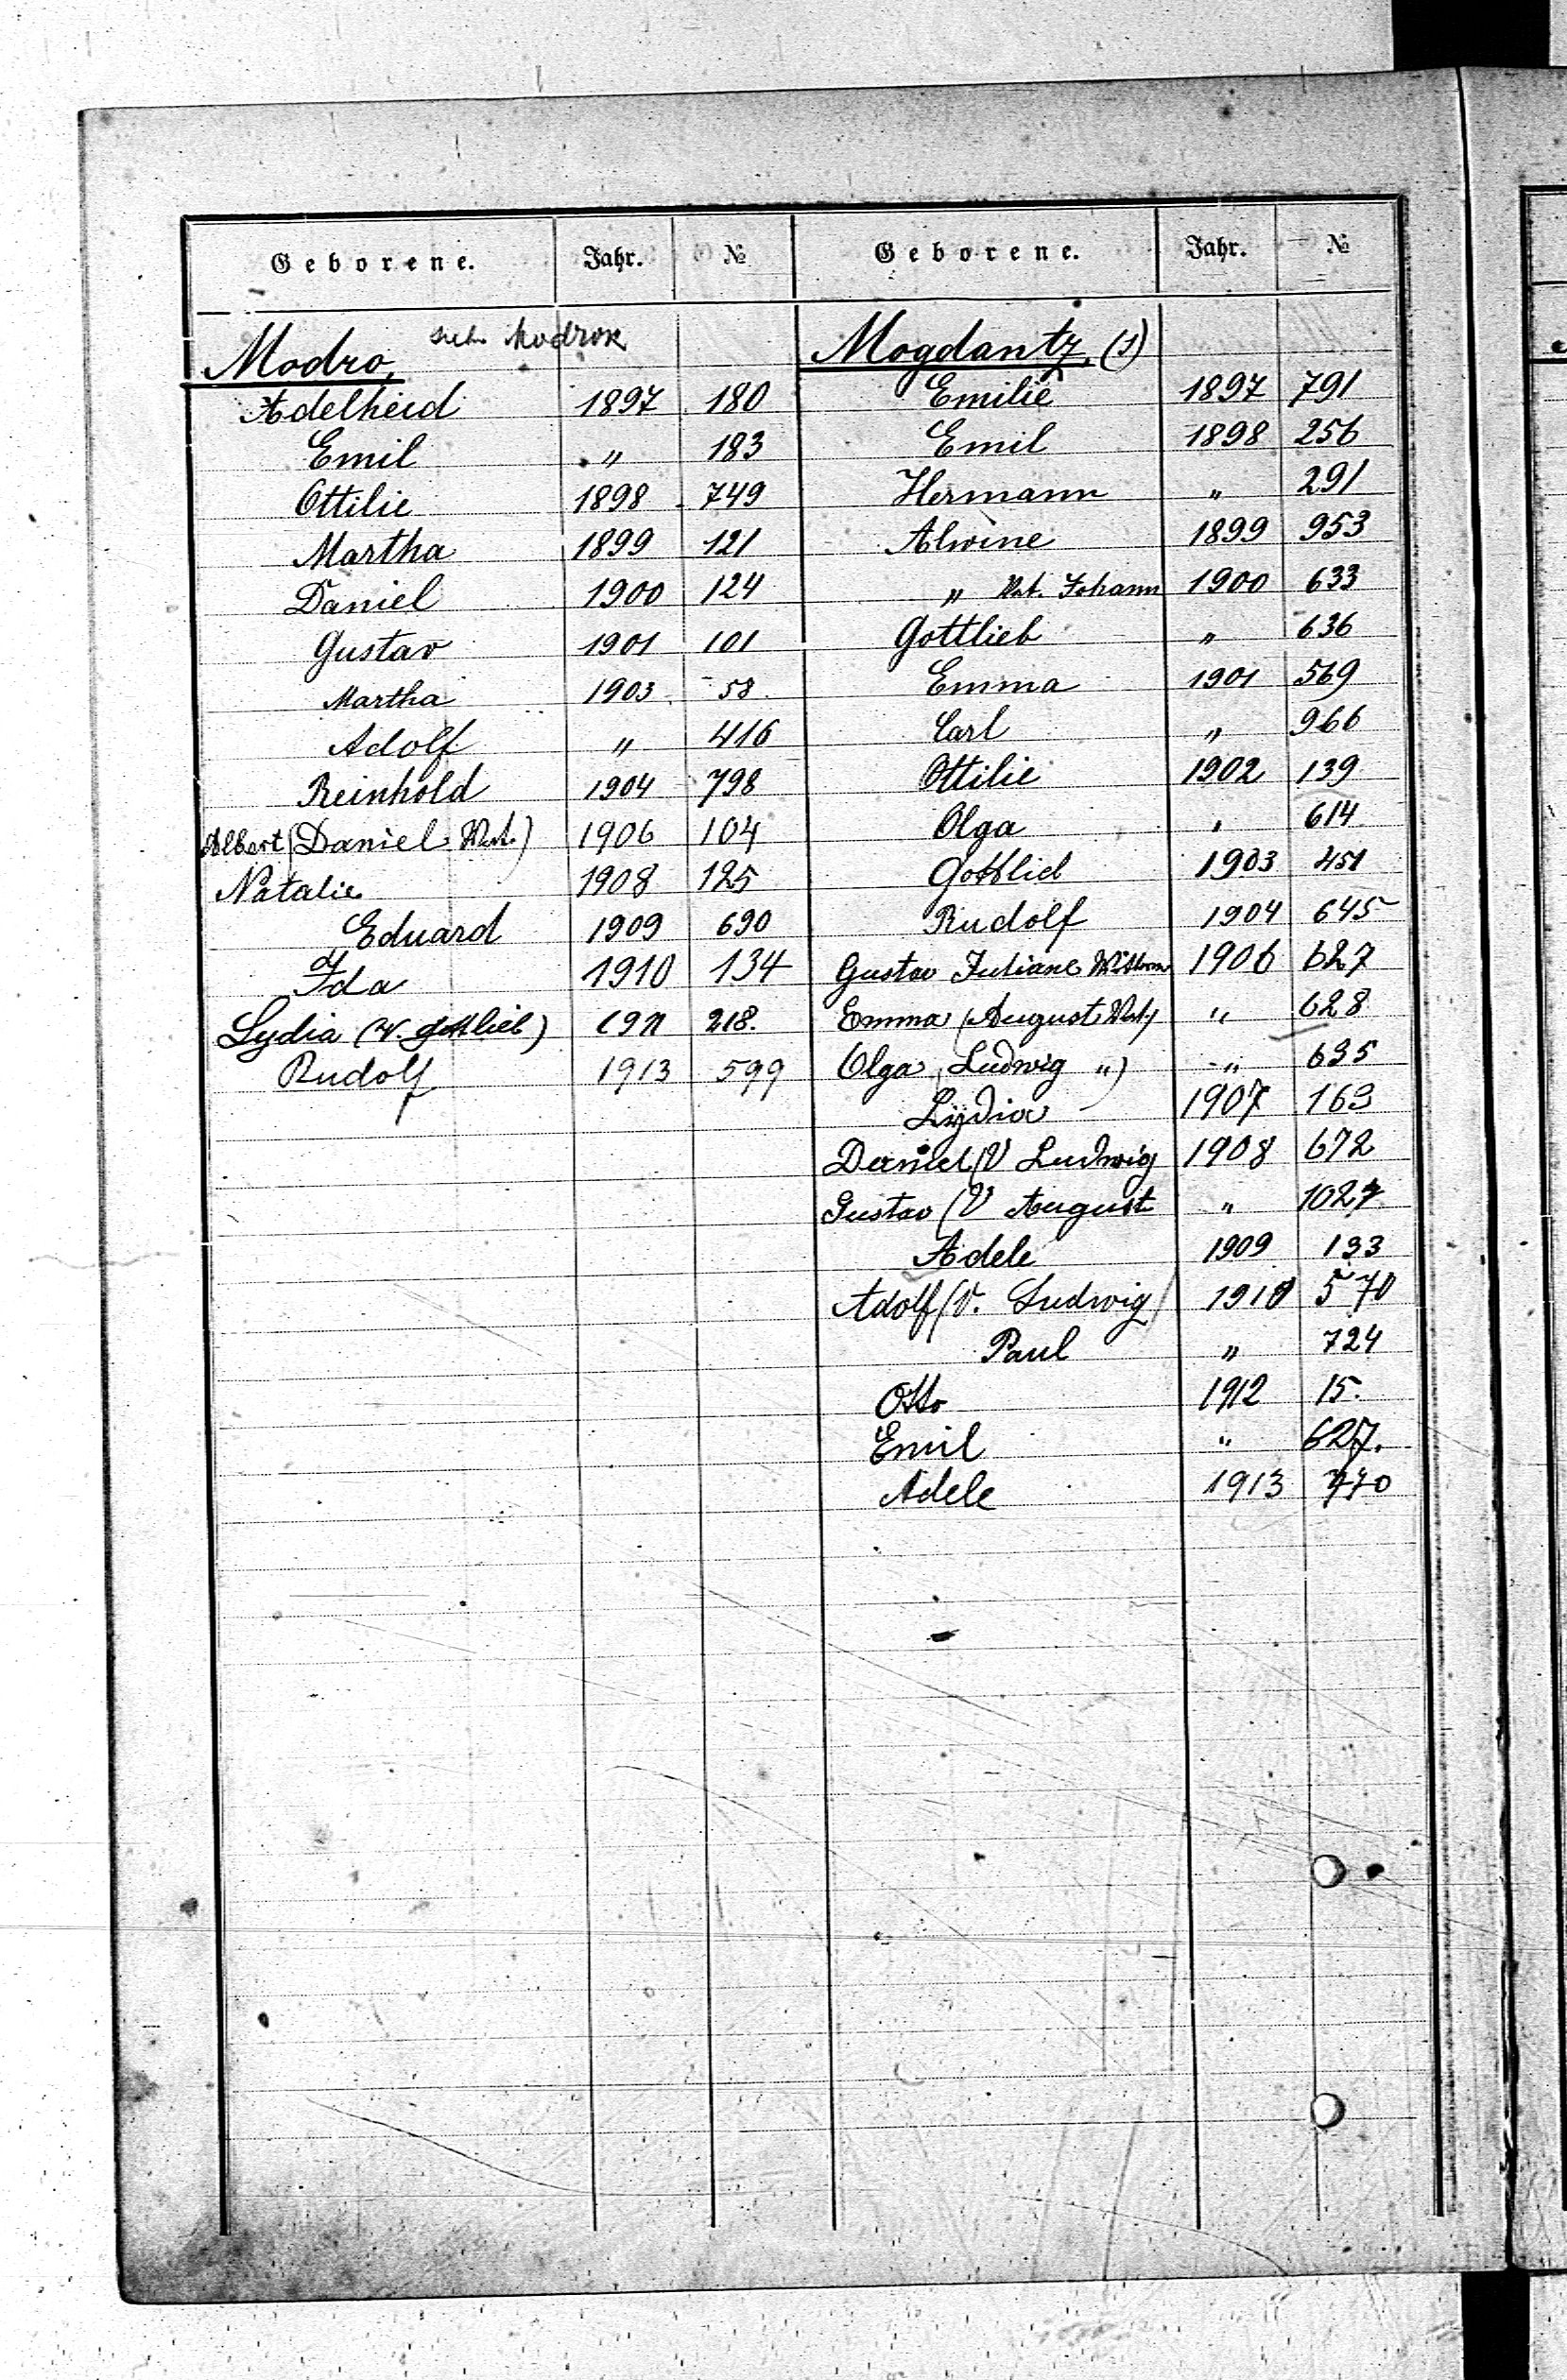 Geborene. Jahr. №
Modro, sieh Modrok
Adelheid 1897 180
Emil " 183
Ottilie 1898 749
Martha 1899 121
Daniel 1900 124
Gustav 1901 101
Martha 1903 58
Adolf " 416
Reinhold 1904 798
Albert (Daniel Vat.) 1906 104
Natalie 1908 125
Eduard 1909 690
Ida 1910 134
Lydia (V. Gottlieb) 1911 218.
Rudolf 1913 599
Geborene. Jahr. №
Mogdantz (1)
Emilie 1897 791
Emil 1898 256
Hermann " 291
Alwine 1899 953
" Vat. Johann 1900 633
Gottlieb " 636
Emma 1901 569
Carl " 966
Ottilie 1902 139
Olga " 614
Gottlieb 1903 451
Rudolf 1904 645
Gustav Juliane 1906 627
Emma (August Vat.) " 628
Olga (Ludwig ") " 635
Lydia 1907 163
Daniel (V Ludwig 1908 672
Gustav (V August " 1027
Adele 1909 133
Adolf (V. Ludwig) 1910 570
Paul " 724
Otto 1912 15.
Emil " 627.
Adele 1913 770